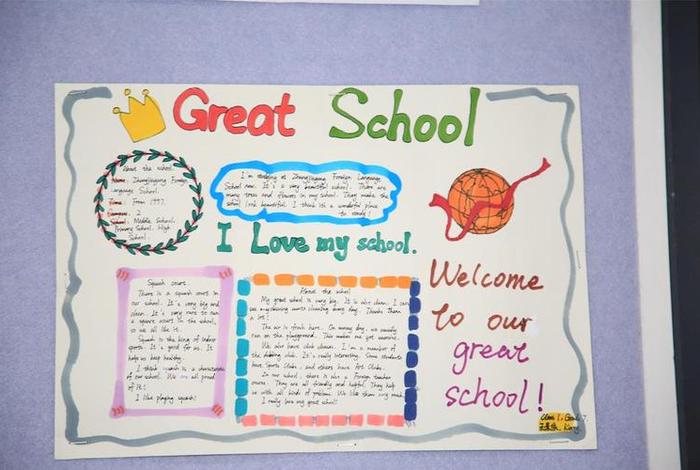 Great School
About the school.
Name: Zhangjiagang Foreign
Language School.
Time: From 1997.
2
School: Middle School,
Primary School, High
School.
I'm studying at Zhangjiagang Foreign Language
School now. It's a very beautiful school. There are
many trees and flowers in my school. They make the
school look beautiful. I think it's a wonderful place
to study!
I Love my school.
Welcome
to our
great
school!
Squash court.
There is a squash court in
our school. It's very big and
clean. It's very rare to own
a squash court in the school,
so we all like it.
Squash is the king of indoor
sports. It's good for us. It
helps us keep healthy.
I think squash is a characteristic
of our school. We are all proud
of it!
I like playing squash!
About the school
My great school is very big. It is also clean. I can
see cleaning every day. Thanks them
a lot!
The air is fresh here. On sunny day, we usually
run on the playground. This makes me get
We also have club classes. I'm a member of
the club. It's really interesting. Some students
have Sports Clubs, and others have Art Clubs.
In our school, there is also a Foreign teacher
They are all friendly and helpful. They help
us with all kinds of problems. We like them very much.
I really love my great school!
Class 1, Grade 7